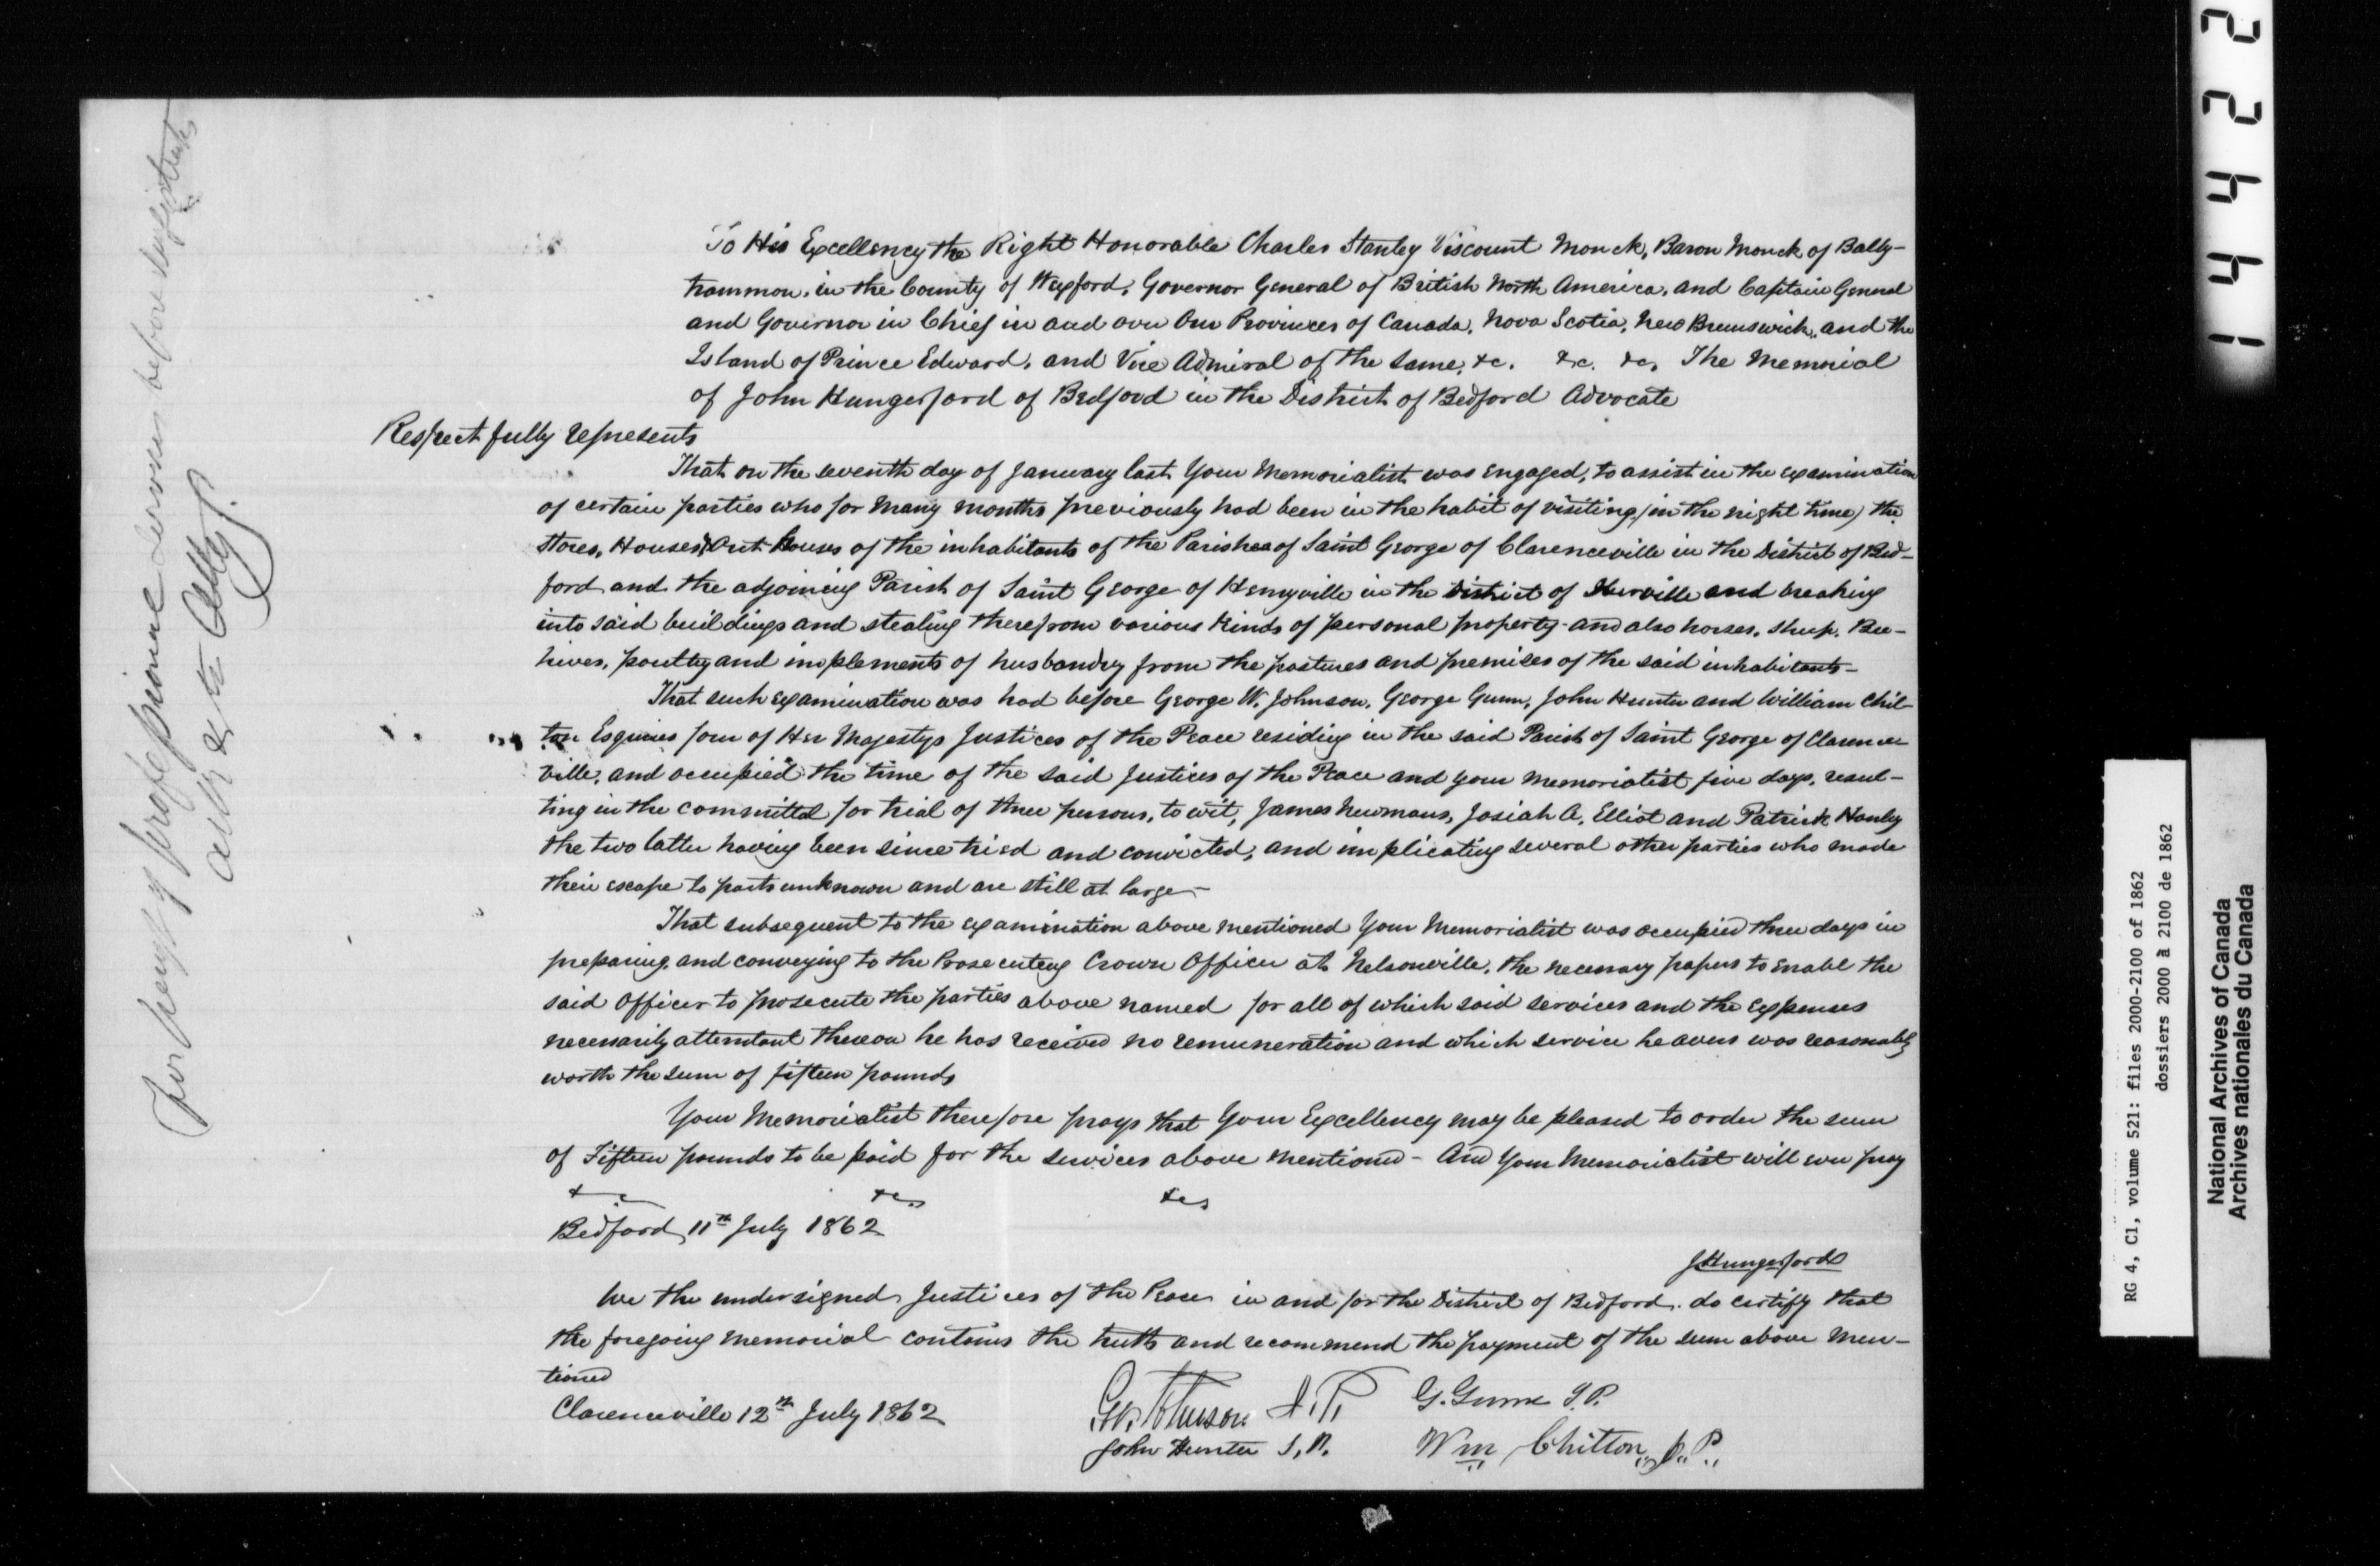 To His Excellency the Right Honorable Charles Stanley Viscount Monck, Baron Monck of Bally-
trammon, in the County of Wexford, Governor General of British North America, and Captain General
and Governor in Chief in and over Our Provinces of Canada, Nova Scotia, New Brunswick, and the
Island of Prince Edward, and Vice Admiral of the same, &c. &c. &c, The Memorial
of John Hungerford of Bedford in the District of Bedford Advocate
Respectfully represents
That on the seventh day of January last Your Memorialist was engaged, to assist in the examination
of certain parties who for many months previously had been in the habit of visiting (in the night time) the
Stores, Houses & Out Houses of the inhabitants of the Parishes of Saint George of Clarenceville in the District of Bed-
ford and the adjoining Parish of Saint George of Henryville in the District of Iberville and breaking
into said buildings and stealing therefrom various kinds of personal property and also horses, sheep, Bee-
hives, poultry and implements of husbandry from the pastures and premises of the said inhabitants-
That such examination was had before George W. Johnson, George Gunn, John Hunter and William Chil-
ton Esquires four of Her Majestys Justices of the Peace residing in the said Parish of Saint George of Clarence
ville, and occupied the time of the said Justices of the Peace and your memorialist five days, resul-
ting in the committal for trial of three persons, to wit, James Newmans, Josiah A. Elliot and Patrick Hanley
the two latter having been since tried and convicted, and implicating several other parties who made
their escape to parts unknown and are still at large-
That subsequent to the examination above mentioned Your Memorialist was occupied three days in
preparing and conveying to the Prosecuting Crown Officer at Nelsonville, the necessary papers to enable the
said Officer to prosecute the parties above named for all of which said services and the expenses
necessarily attendant thereon he has received no remuneration and which service he avers was reasonably
worth the sum of fifteen pounds
Your Memorialist therefore prays that Your Excellency may be pleased to order the sum
of Fifteen pounds to be paid for the services above mentioned - And Your Memorialist will ever pray
&c &c &c
Bedford, 11th July 1862
J Hungerford
We the undersigned Justices of the Peace in and for the District of Bedford do certify that
the foregoing memorial contains the truth and recommend the payment of the sum above men-
tioned
Clarenceville 12th July 1862
G.W. Johnson J.P. G. Gunn J.P.
John Hunter J.P. Wm Chilton J.P.
for professional services before Magistrates
1 4 4 2 2
RG 4, C1, volume 521: files 2000-2100 of 1862
dossiers 2000 à 2100 de 1862
National Archives of Canada
Archives nationales du Canada